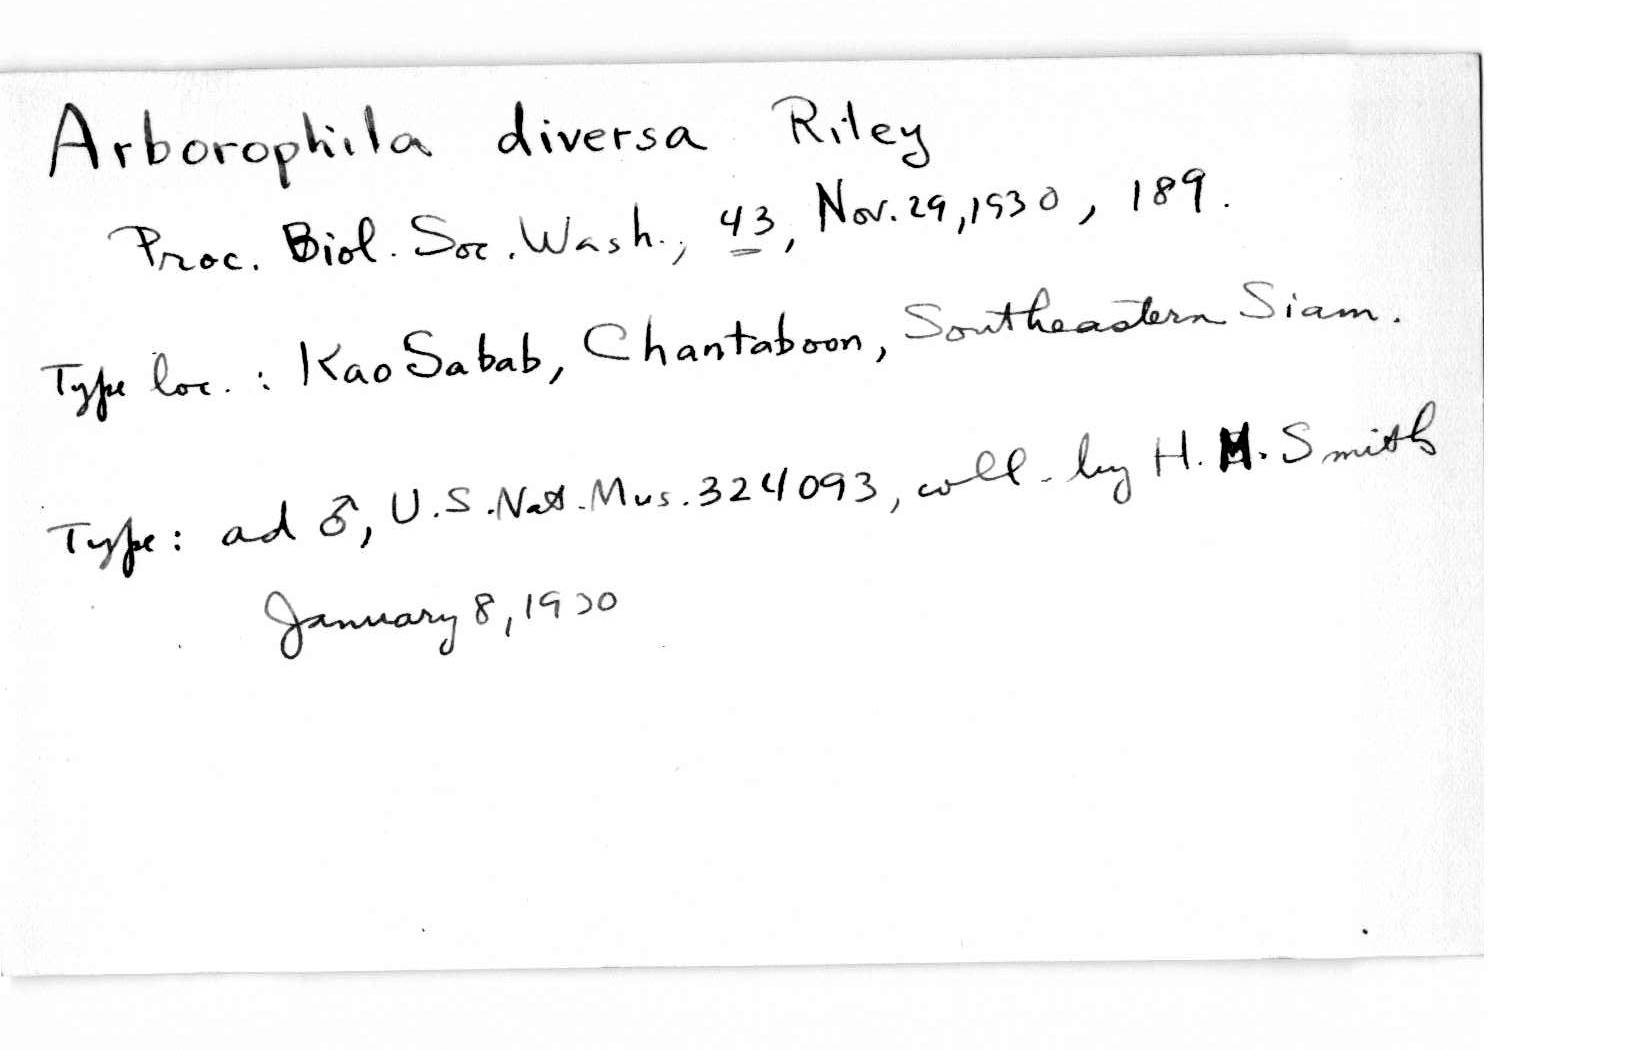 Arborophila diversa Riley
Proc. Biol. Soc. Wash., 43, Nov. 29, 1930, 189.
Type loc. : Kao Sabab, Chantaboon, Southeastern Siam.
Type: ad ♂, U.S. Nat. Mus. 324093, coll. by H. M. Smith
January 8, 1930